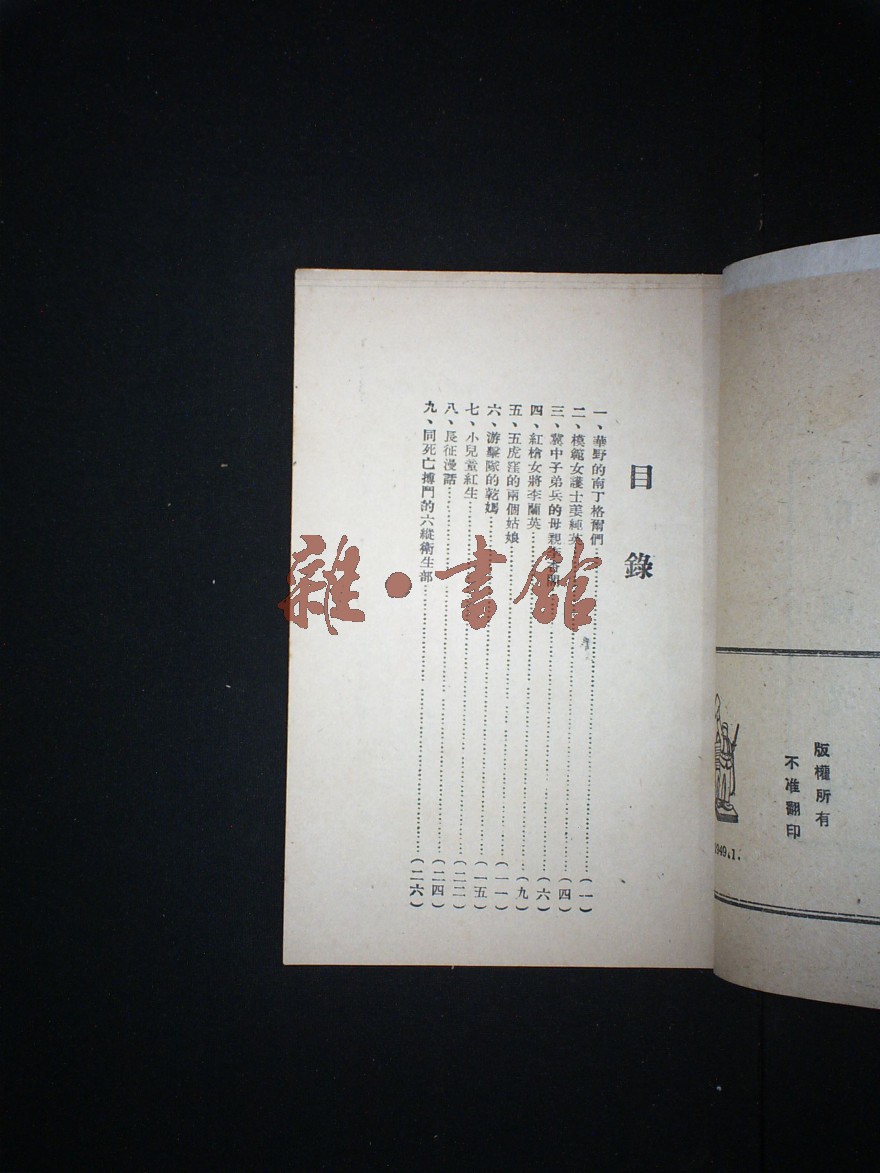 目錄
一、華野的南丁格爾們……(一)
二、模範女護士姜純英……(四)
三、冀中子弟兵的母親……(六)
四、紅槍女將李蘭英……(九)
五、五虎窪的兩個姑娘……(一一)
六、游擊隊的乾媽……(一五)
七、小兒童紅生……(二二)
八、長征漫話……(二四)
九、同死亡搏鬥的六縱衛生部……(二六)
版權所有
不准翻印
1949.1.
雜·書館